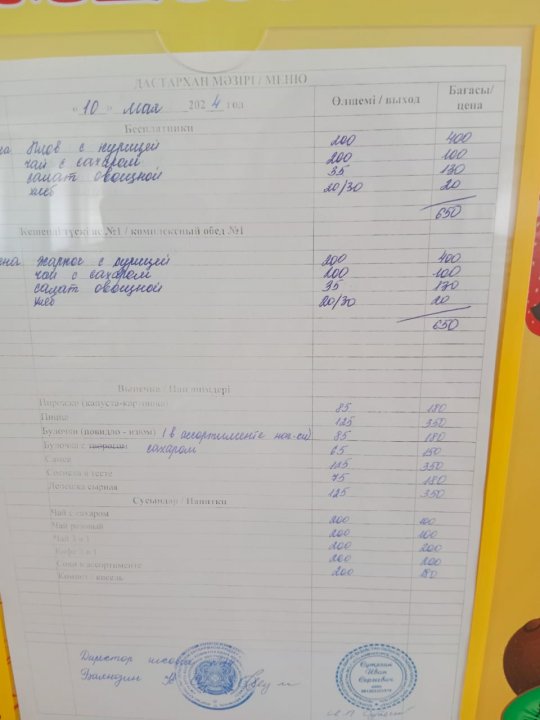 ДАСТАРХАН МӘЗІРІ / МЕНЮ
« 10 » мая 2024 год Өлшемі / выход Бағасы/ цена
Бесплатники
на Плов с курицей 200 400
чай с сахаром 200 100
салат овощной 35 130
хлеб 20/30 20
650
№1 / комплексный обед №1
ена жаркое с курицей 200 400
чай с сахаром 200 100
салат овощной 35 130
хлеб 20/30 20
650
Выпечка / Нан өнімдері
85 180
Пицца 125 350
Булочки (повидло - изюм) (в ассортименте 85 180
Булочка с сахаром 65 150
Самса 115 350
Сосиска в тесте 75 180
Лепешка сырная 125 350
Сусындар / Напитки
Чай с сахаром 200 100
Чай разовый 200 100
Чай 3 в 1 200 200
Кофе 3 в 1 200 200
Соки в ассортименте
Компот / кисель 200 80
Директор
Сутулин
Иван
Сергеевич